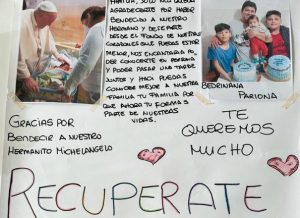 FAMILIA, SOLO NOS QUEDA
AGRADECERTE POR HABER
BENDECIDO A NUESTRO
HERMANO Y DESEARTE
DESDE EL FONDO DE NUESTROS
CORAZONES QUE PUEDAS ESTAR
MEJOR, NOS ENCANTARIA PO
DER CONOCERTE EN PERSONA
Y PODER PASAR UNA TARDE
JUNTOS Y HACI PUEDAS
CONOCER MEJOR A NUESTRA
FAMILIA TU FAMILIA POR
QUE AHORA TU FORMAS
PARTE DE NUESTRAS
VIDAS.
GRACIAS POR
BENDECIR A NUESTRO
HERMANITO MICHELANGELO
BEDRINANA
PARIONA
TE
QUEREMOS
MUCHO
RECUPERATE